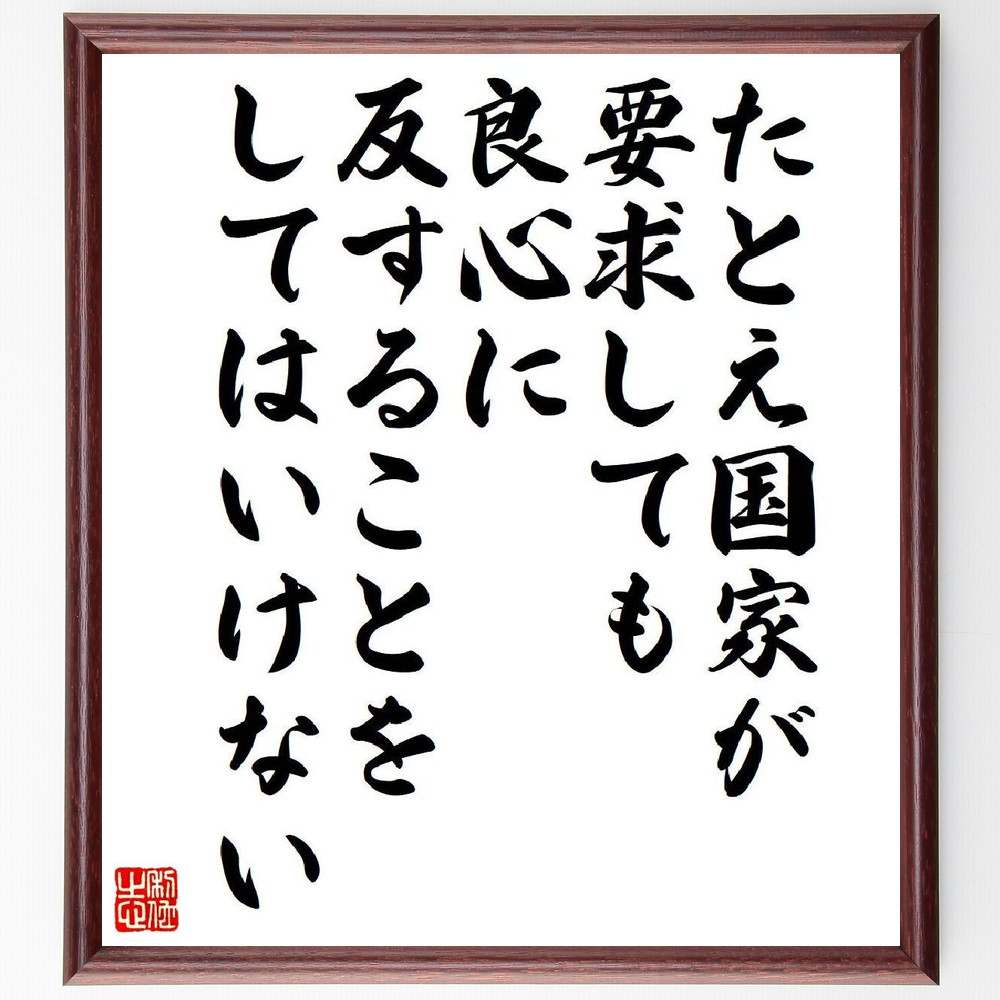 たとえ国家が
要求しても
良心に
反することを
してはいけない